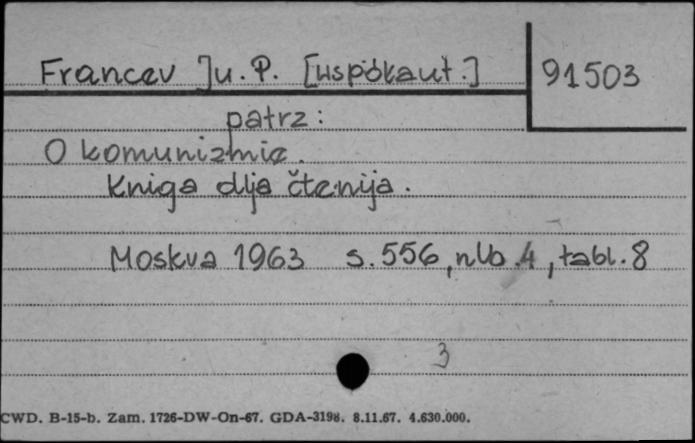 Francev Ju. P. [współaut.] 91503
patrz:
O komunizmie.
Kniga dlja čtenija.
Moskva 1963 s. 556, nlb. 4, tabl. 8
3
CWD. B-15-b. Zam. 1726-DW-On-67. GDA-3198. 8.11.67. 4.630.000.